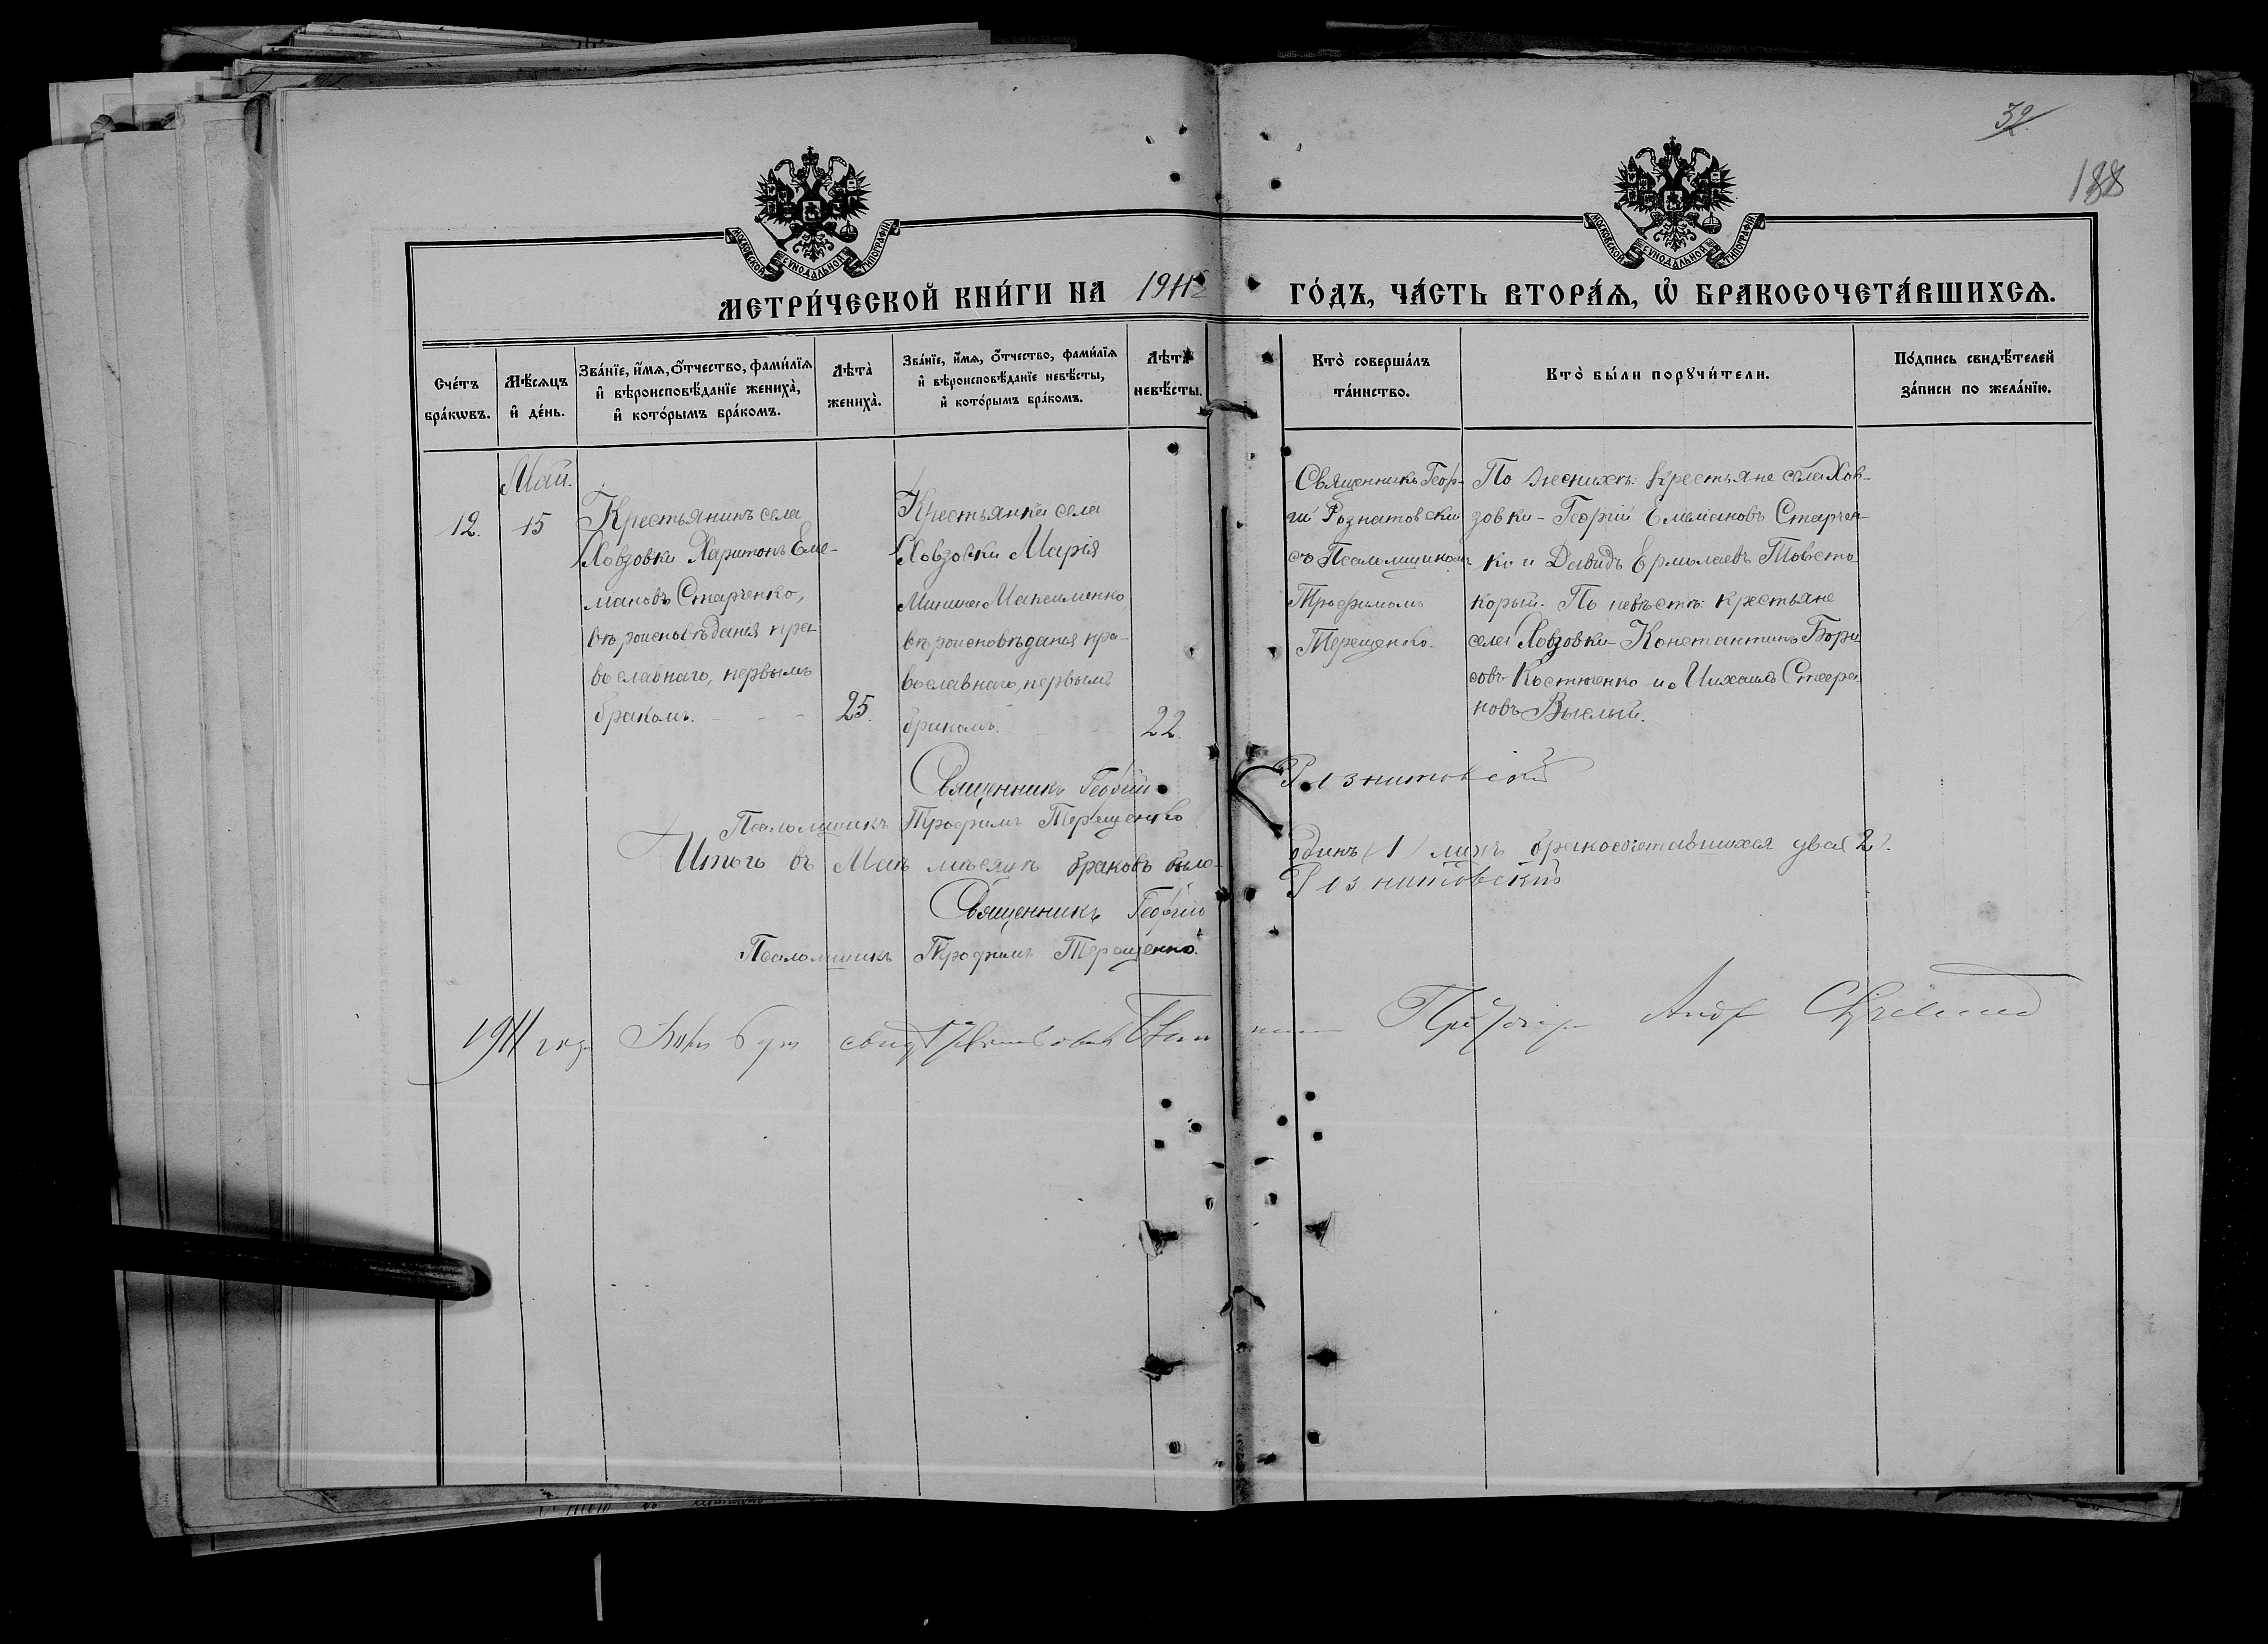 32
188
МОСКОВСКОЙ СѴНОДАЛЬНОЙ ТИПОГРАФІИ
МОСКОВСКОЙ СѴНОДАЛЬНОЙ ТИПОГРАФІИ
МЕТРИ́ЧЕСКОЙ КНИ́ГИ НА 1911 ГО́ДЪ, ЧА́СТЬ ВТОРА́Ѧ, Ѽ БРАКОСОЧЕТА́ВШИХСѦ.
Сче́тъ бра́кѡвъ.
Мѣ́сѧцъ и҆ де́нь.
Зва́нїе, и҆́мѧ, ѻ҆́тчество, фами́лїѧ и҆ вѣроисповѣ́данїе жениха̀, и҆ кото́рымъ бра́комъ.
Лѣта̀ жениха̀.
Зва́нїе, и҆́мѧ, ѻ҆́тчество, фами́лїѧ и҆ вѣроисповѣ́данїе невѣ́сты, и҆ кото́рымъ бра́комъ.
Лѣта̀ невѣ́сты.
Кто̀ соверша́лъ та́инство.
Кто̀ бы́ли порꙋчи́тели.
По́дпись свидѣ́телей за́писи по жела́нїю.
Май.
12.
15
Крестьянинъ села
Ховзовки Харитонъ Еме-
льяновъ Старченко,
вѣроисповѣданія пра-
вославнаго, первымъ
бракомъ.
25.
Крестьянка села
Ховзовки Марія
Минина Максименко,
вѣроисповѣданія пра-
вославнаго, первымъ
бракомъ.
22.
Священникъ Геор-
гій Рознатовскій
съ Псаломщикомъ
Трофимомъ
Терещенко.
По женихѣ: крестьяне села Хов-
зовки - Георгій Емельяновъ Старчен-
ко и Давидъ Ермолаевъ Товсто
корый. По невѣстѣ: крестьяне
села Ховзовки - Константинъ Бори
совъ Костюченко и Михаилъ
новъ
Священникъ Георгій Рознатовскій
Псаломщикъ Трофимъ Терещенко
Итого въ Маѣ мѣсяцѣ браковъ было одинъ (1) лицъ бракосочетавшихся два (2).
Священникъ Георгій Рознатовскій
Псаломщикъ Трофимъ Терещенко.
1911 года